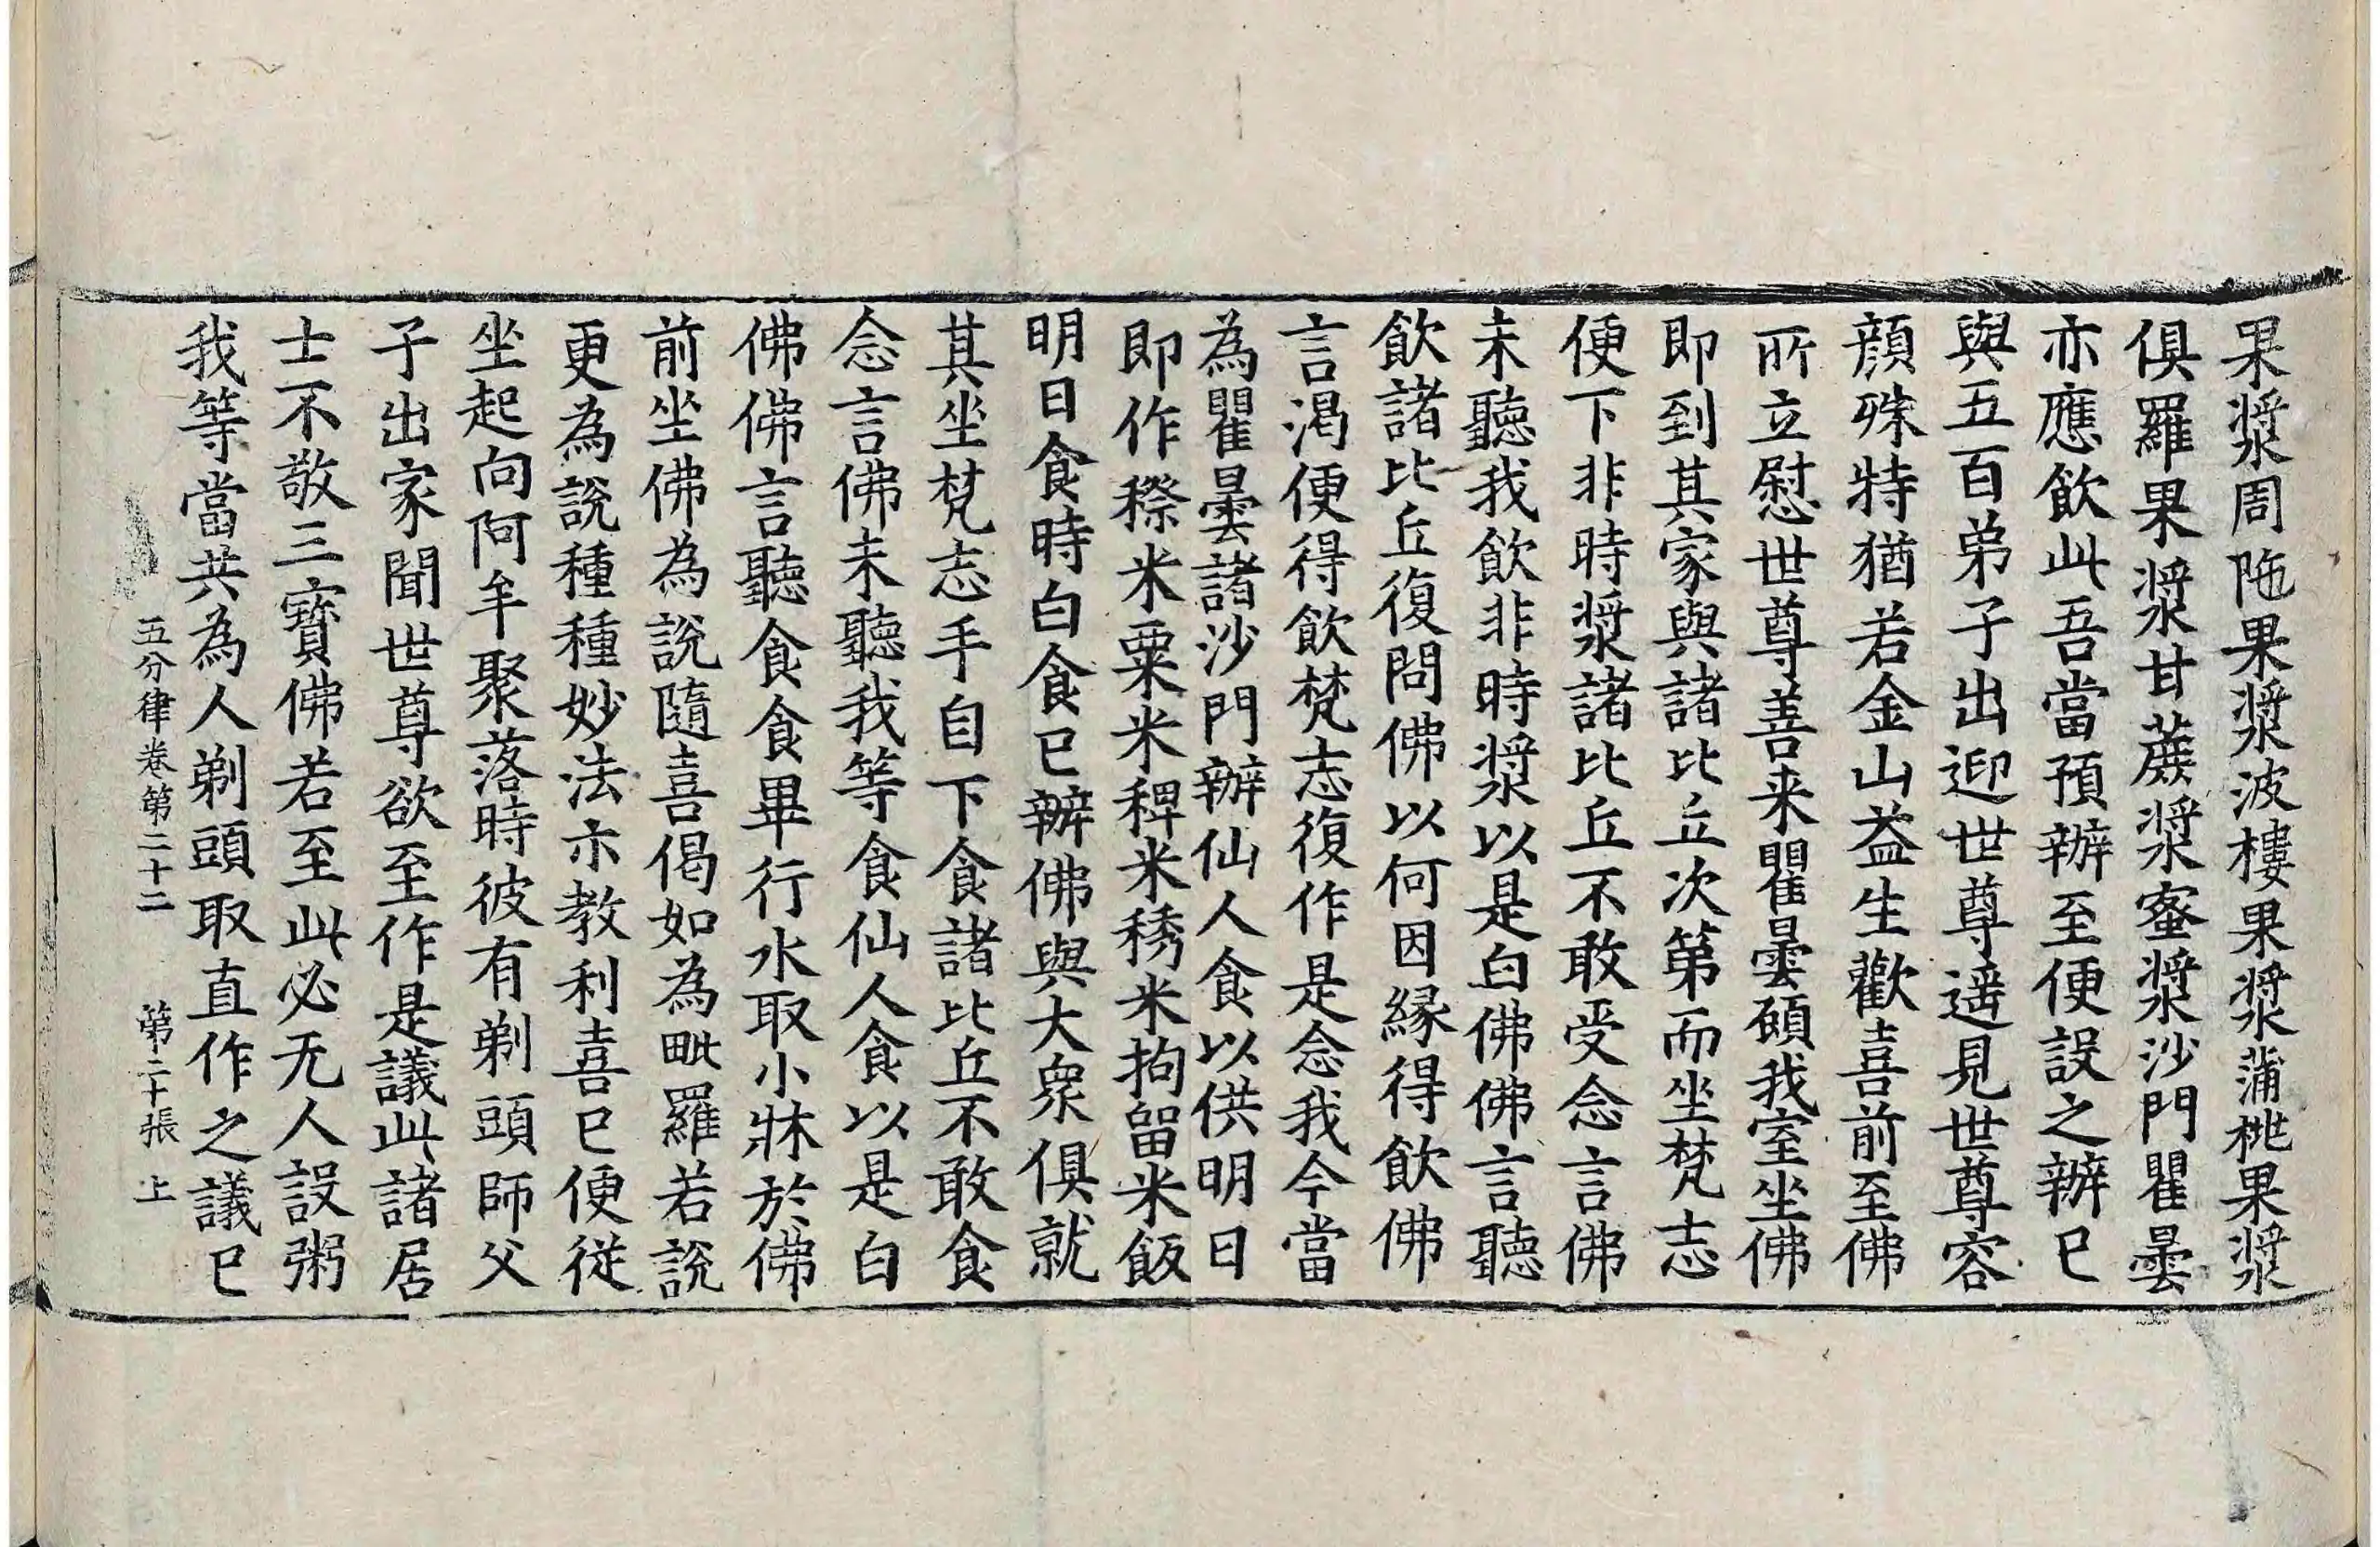 果漿周陁果漿波樓果漿蒲桃果漿
俱羅果漿甘蔗漿蜜漿沙門瞿曇
亦應飲此吾當預辦至便設之辦已
與五百弟子出迎世尊遥見世尊容
顔殊特猶若金山益生歡喜前至佛
所立慰世尊善来瞿曇顧我室坐佛
即到其家與諸比丘次第而坐梵志
便下非時漿諸比丘不敢受念言佛
未聽我飲非時漿以是白佛佛言聽
飲諸比丘復問佛以何因緣得飲佛
言渴便得飲梵志復作是念我今當
為瞿曇諸沙門辦仙人食以供明日
即作穄米粟米稗米稊米拘留米飯
明日食時白食已辦佛與大衆俱就
其坐梵志手自下食諸比丘不敢食
念言佛未聽我等食仙人食以是白
佛佛言聽食食畢行水取小牀於佛
前坐佛為說隨喜偈如為毗羅若說
更為說種種妙法示教利喜已便從
坐起向阿牟聚落時彼有剃頭師父
子出家聞世尊欲至作是議此諸居
士不敬三寶佛若至此必无人設粥
我等當共為人剃頭取直作之議已
五分律卷第二十二 第二十張 上